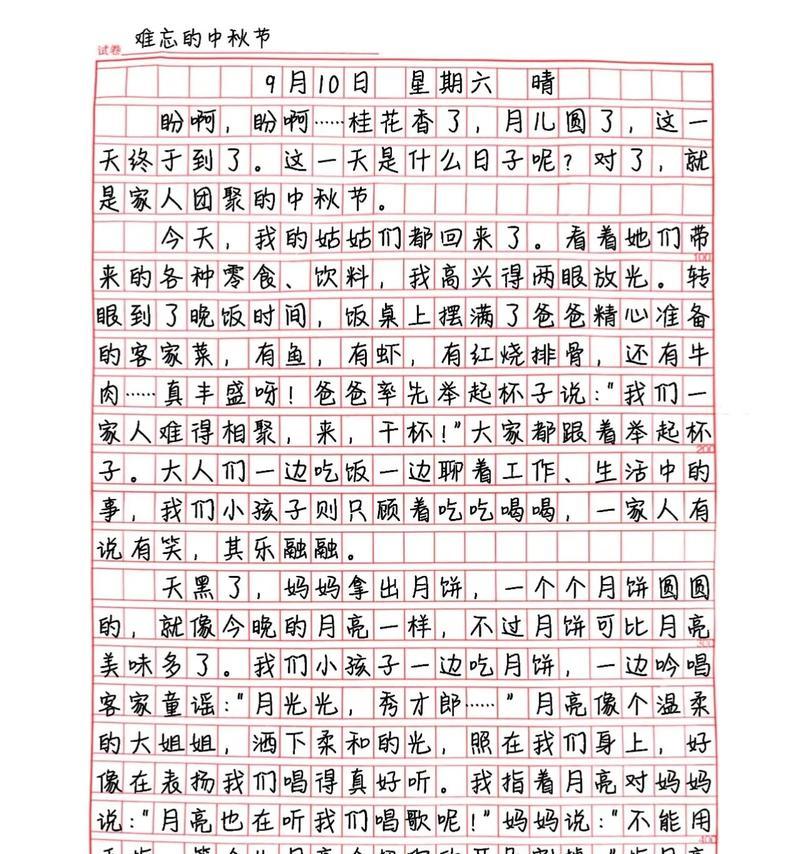 试卷 难忘的中秋节
9月10日 星期六 晴
盼啊，盼啊……桂花香了，月儿圆了，这一
天终于到了。这一天是什么日子呢？对了，就
是家人团聚的中秋节。
今天，我的姑姑们都回来了。看着她们带
100
来的各种零食、饮料，我高兴得两眼放光。转
眼到了晚饭时间，饭桌上摆满了爸爸精心准备
的客家菜，有鱼，有虾，有红烧排骨，还有牛
肉……真丰盛呀！爸爸率先举起杯子说："我们一
家人难得相聚，来，干杯！"大家都跟着举起杯
200
子。大人们一边吃饭一边聊着工作、生活中的
事，我们小孩子则只顾着吃吃喝喝，一家人有
说有笑，其乐融融。
天黑了，妈妈拿出月饼，一个个月饼圆圆
的，就像今晚的月亮一样，不过月饼可比月亮
300
美味多了。我们小孩子一边吃月饼，一边吟唱
客家童谣："月光光，秀才郎……"月亮像个温柔
的大姐姐，洒下柔和的光，照在我们身上，好
像在表扬我们唱得真好听。我指着月亮对妈妈
说："月亮也在听我们唱歌呢！"妈妈说："不能用
400